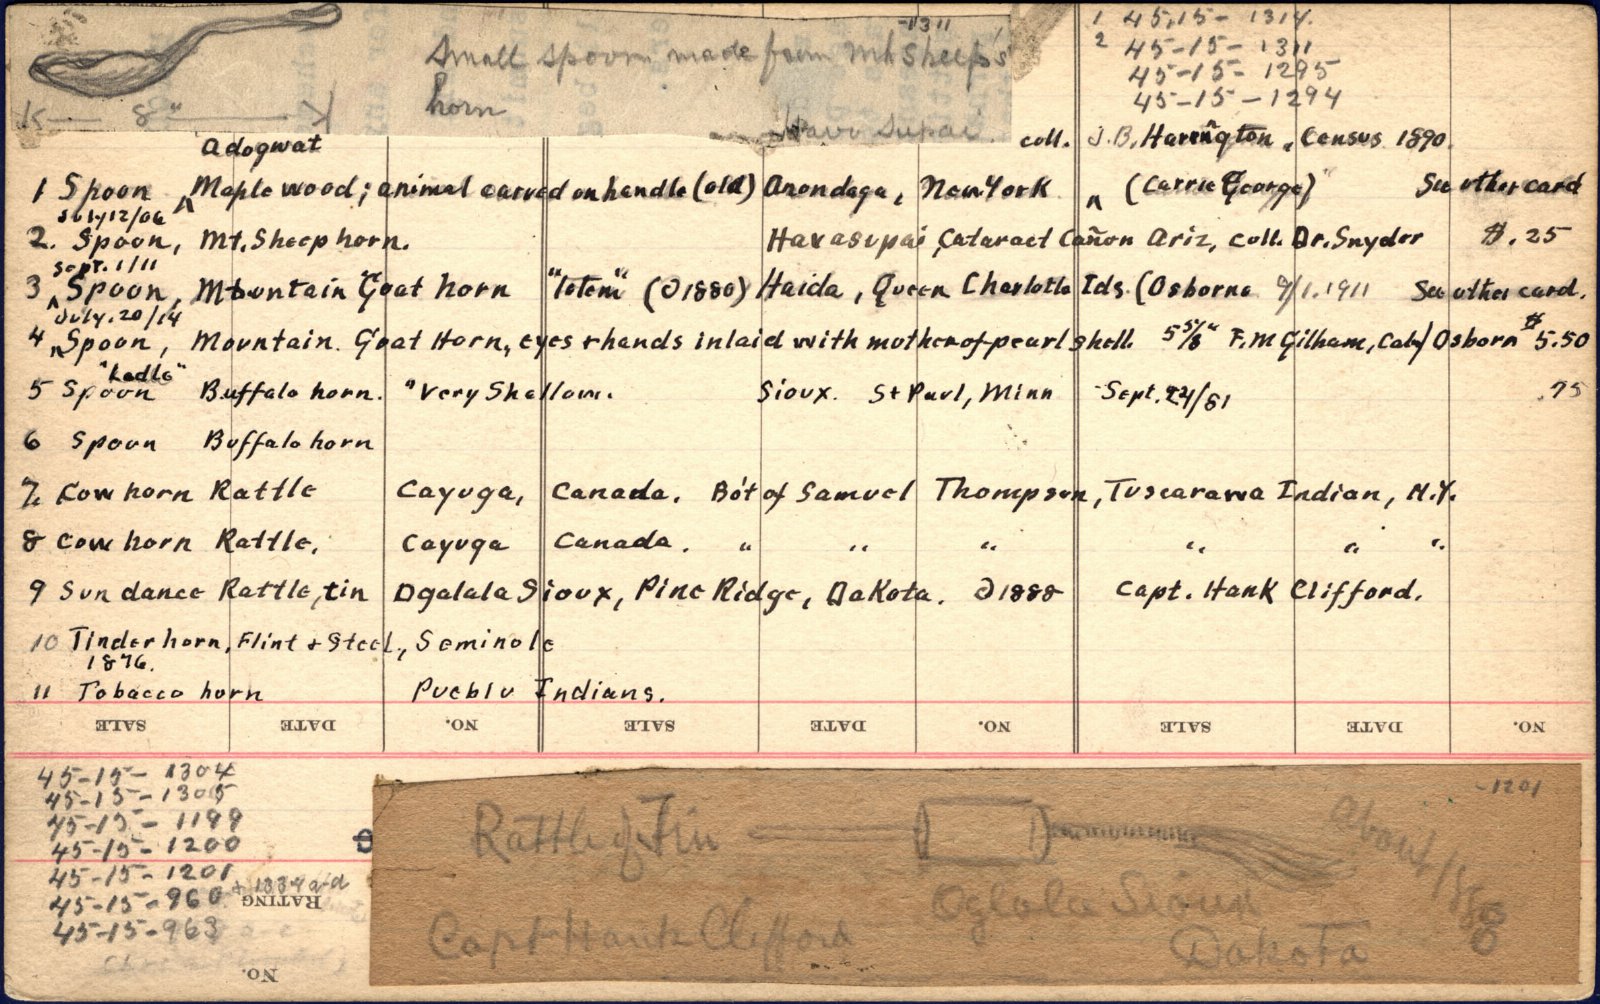 -1311
Small spoon made from Mt Sheep's
horn
8"
Hava Supai
1 45-15- 1314
2 45-15- 1311
45-15- 1295
45-15-1294
coll. J.B. Harrington, Census 1890.
Adogwat
1 Spoon ^ Maple wood; animal carved on handle (old) Onondaga, New York ^ (Carrie George) See other card
July 12/06
2. Spoon, Mt. Sheep horn. Havasupai Cataract Cañon Ariz, coll. Dr. Snyder $.25
Sept. 1/11
3 ^ Spoon, Mountain Goat horn "Totem" (∂1880) Haida, Queen Charlotte Ids. (Osborne 9/1.1911 See other card.
July. 20/14
4 ^ Spoon, Mountain Goat Horn, eyes + hands inlaid with mother of pearl shell. 5 5/8" F.M Gilham, Cal/ Osborn $5.50
"Ladle"
5 Spoon Buffalo horn. "Very Shallow. Sioux. St Paul, Minn Sept. 24/81 .75
6 Spoon Buffalo horn
7. Cow horn Rattle Cayuga, Canada. Bo't of Samuel Thompson, Tuscarawa Indian, N.Y.
8 Cow horn Rattle, Cayuga Canada. " " " " " "
9 Sun dance Rattle, tin Ogalala Sioux, Pine Ridge, Dakota. ∂1888 Capt. Hank Clifford.
10 Tinder horn, Flint + Steel, Seminole
1876.
11 Tobacco horn Pueblo Indians.
SALE DATE NO. SALE DATE NO. SALE DATE NO.
45-15- 1304
45-15-1305
45-15- 1199
45-15-1200
45-15-1201
45-15-960 + 1334 a-d
45-15-963
RATING
NO.
9
-1201
Rattle of Tin
About 1880
Oglala Sioux
Capt Hank Clifford
Dakota